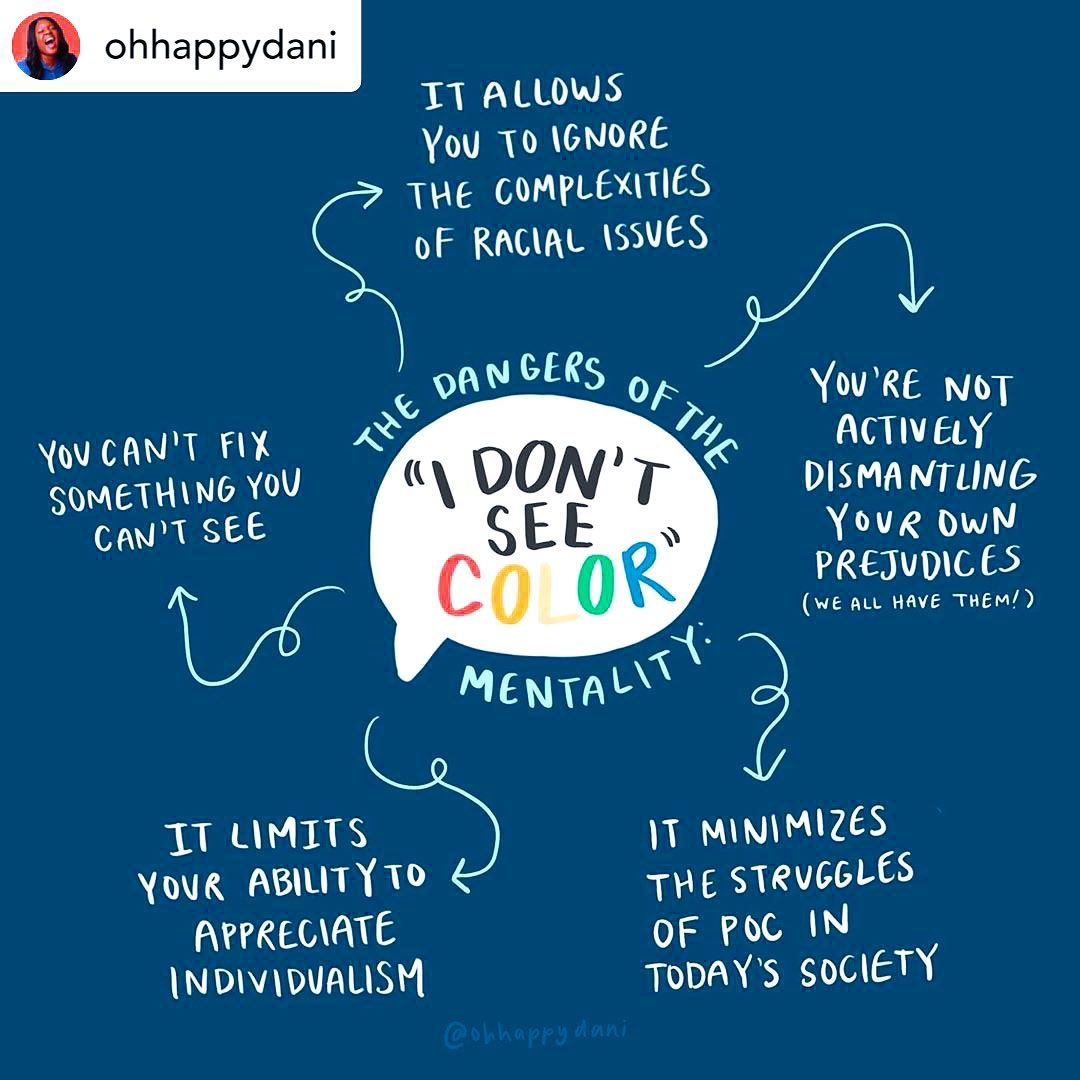 ohhappydani
IT ALLOWS
YOU TO IGNORE
THE COMPLEXITIES
OF RACIAL ISSUES
THE DANGERS OF THE
"I DON'T
SEE
COLOR"
MENTALITY:
YOU'RE NOT
ACTIVELY
DISMANTLING
YOUR OWN
PREJUDICES
(WE ALL HAVE THEM!)
IT MINIMIZES
THE STRUGGLES
OF POC IN
TODAY'S SOCIETY
IT LIMITS
YOUR ABILITY TO
APPRECIATE
INDIVIDUALISM
YOU CAN'T FIX
SOMETHING YOU
CAN'T SEE
@ohhappydani